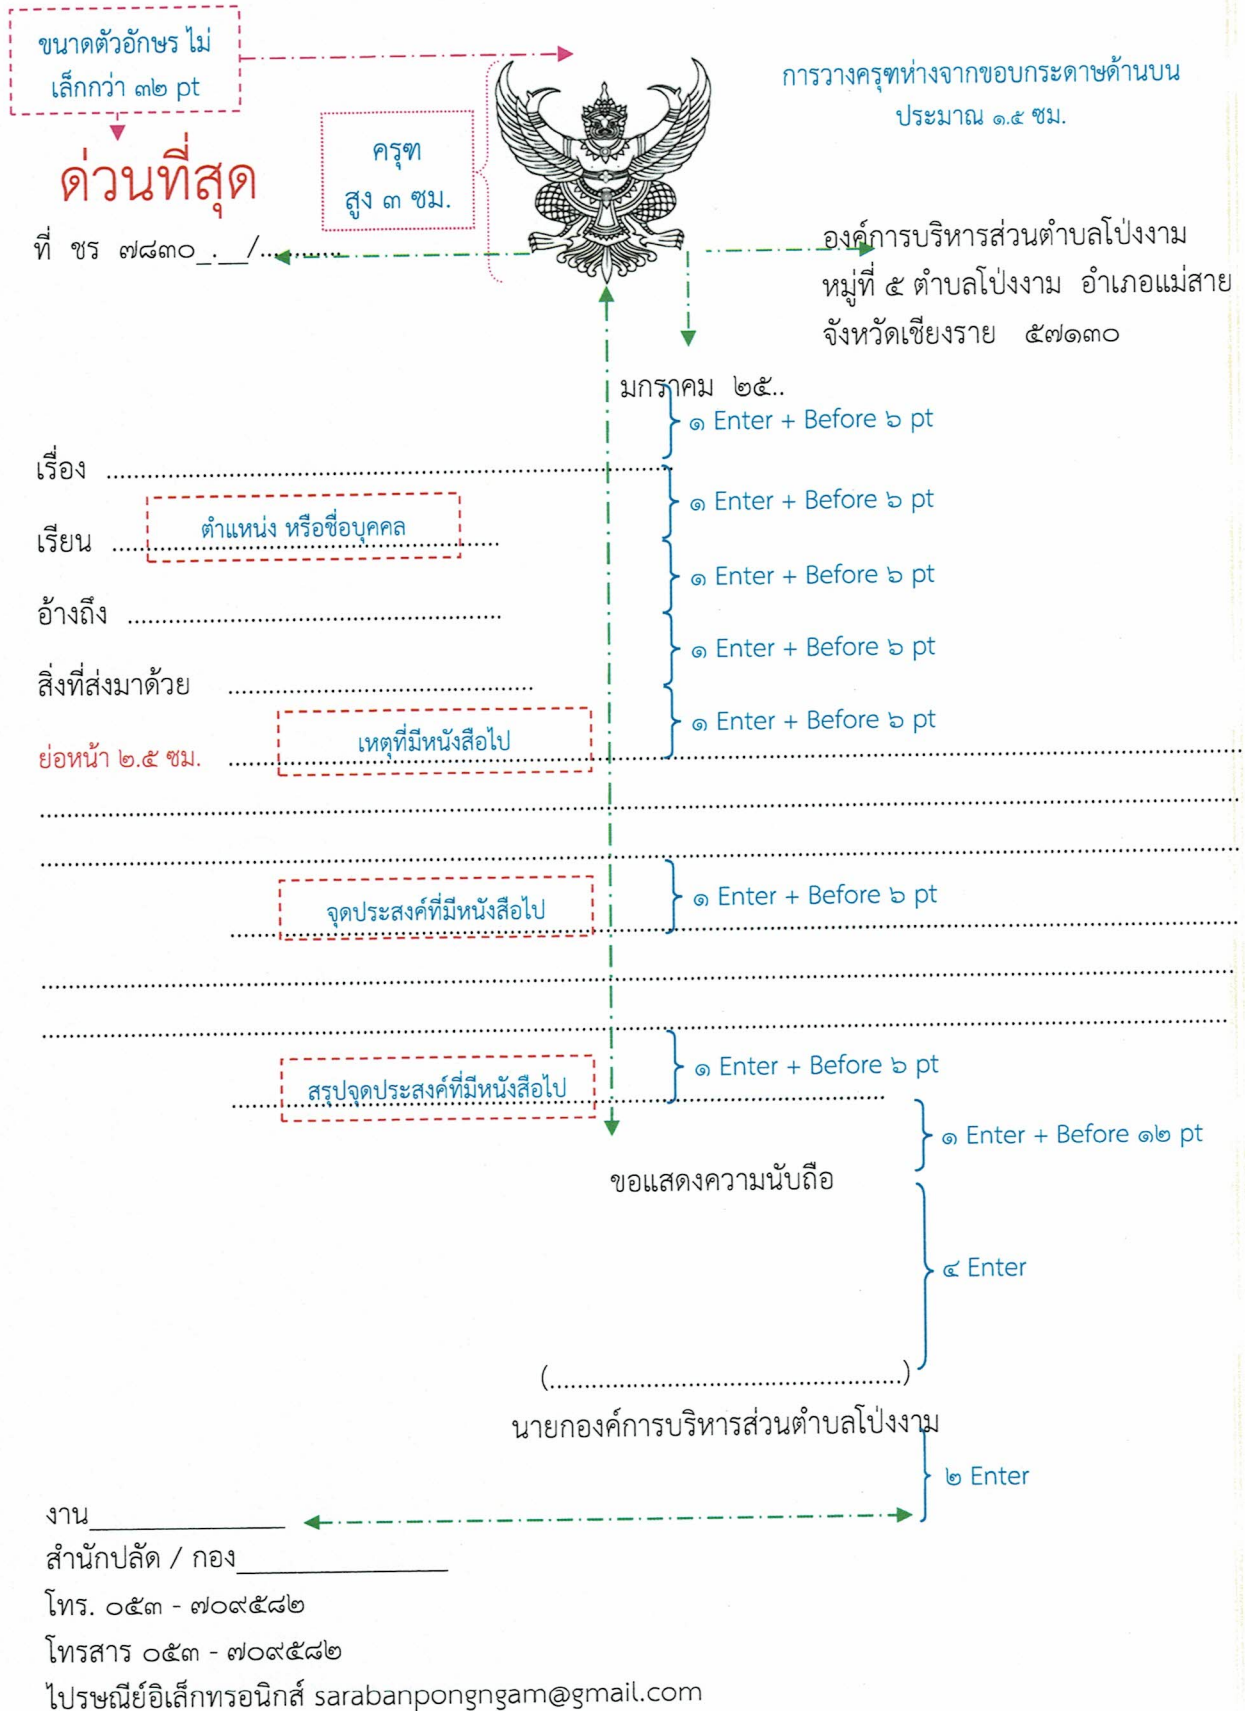 ขนาดตัวอักษร ไม่
เล็กกว่า ๓๒ pt
การวางครุฑห่างจากขอบกระดาษด้านบน
ประมาณ ๑.๕ ซม.
ครุฑ
สูง ๓ ซม.
ด่วนที่สุด
ที่ ชร ๗๘๓๐_.__/............
องค์การบริหารส่วนตำบลโป่งงาม
หมู่ที่ ๕ ตำบลโป่งงาม อำเภอแม่สาย
จังหวัดเชียงราย ๕๗๑๓๐
มกราคม ๒๕..
๑ Enter + Before ๖ pt
เรื่อง ..................................................................................
๑ Enter + Before ๖ pt
เรียน ตำแหน่ง หรือชื่อบุคคล
๑ Enter + Before ๖ pt
อ้างถึง ......................................................
๑ Enter + Before ๖ pt
สิ่งที่ส่งมาด้วย ............................................
๑ Enter + Before ๖ pt
ย่อหน้า ๒.๕ ซม. เหตุที่มีหนังสือไป
๑ Enter + Before ๖ pt
จุดประสงค์ที่มีหนังสือไป
๑ Enter + Before ๖ pt
สรุปจุดประสงค์ที่มีหนังสือไป
๑ Enter + Before ๑๒ pt
ขอแสดงความนับถือ
๔ Enter
(...................................................)
นายกองค์การบริหารส่วนตำบลโป่งงาม
๒ Enter
งาน______________
สำนักปลัด / กอง_______________
โทร. ๐๕๓ - ๗๐๙๕๘๒
โทรสาร ๐๕๓ - ๗๐๙๕๘๒
ไปรษณีย์อิเล็กทรอนิกส์ sarabanpongngam@gmail.com